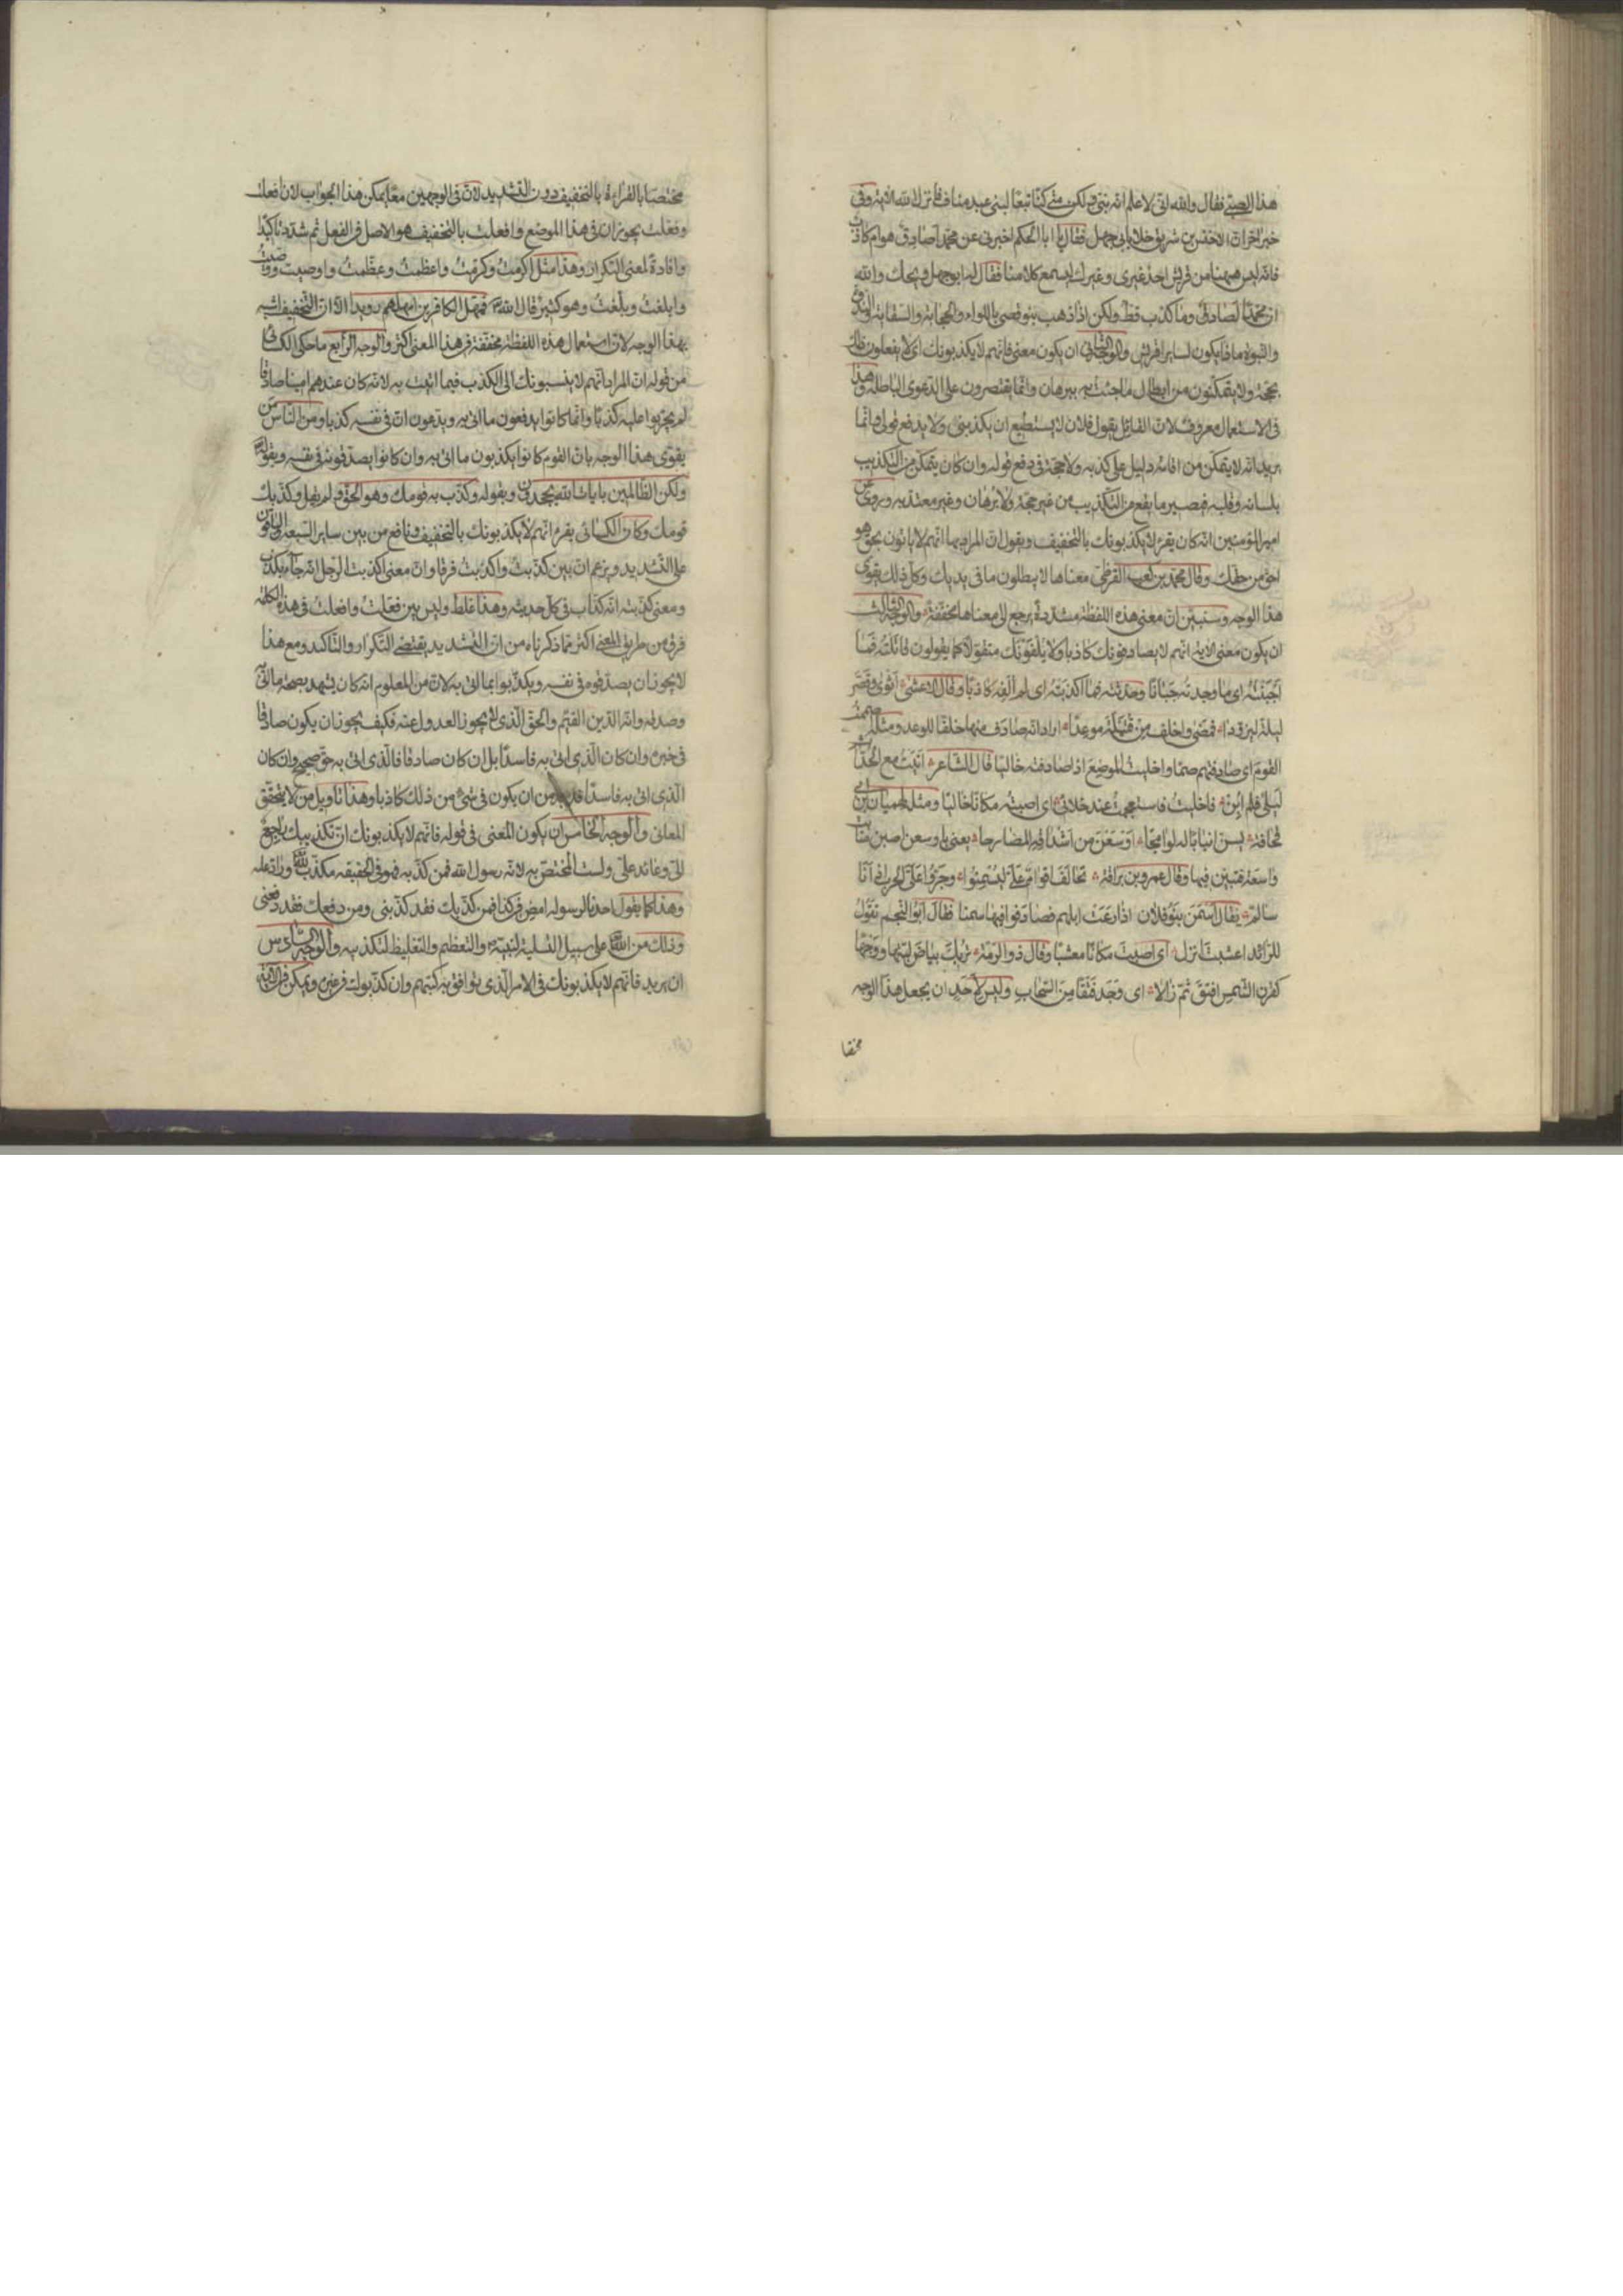 هذا الصبئ فقال والله انى لاعلم انه نبى ولكن متى كنا تبعًا لبنى عبد مناف فانزل الله الاية وفى
خبر اخر ان الاخنس بن شريق خلا بابى جهل فقال يا ابا الحكم اخبرنى عن محمد أصادق هو ام كاذب
فانه ليس هيهنا من قريش احد غيرى وغيرك يسمع كلامنا فقال له ابو جهل ويحك والله
ان محمدًا لصادق وما كذب قط ولكن اذا ذهب بنو قصى باللواء والحجابة والسقاية والندوة
والنبوة ماذا يكون لساير قريش والوجه الثانى ان يكون معنى فانهم لا يكذبونك اى لا يفعلون ذلك
بحجة ولا يتمكنون من ابطال ما جئت به ببرهان وانما يقتصرون على الدعوى الباطلة وهذا
فى الاستعمال معروف لان القائل يقول فلان لا يستطيع ان يكذبنى ولا يدفع قولى وانما
يريد انه لا يتمكن من اقامة دليل على كذبه ولا حجة فى دفع قوله وان كان يتمكن من التكذيب
بلسانه وقلبه فيصير ما يقع من التكذيب من غير حجة ولا برهان وغير معتد به وروى عن
امير المؤمنين انه كان يقرء لا يكذبونك بالتخفيف ويقول ان المراد بها انهم لا يأتون بحق هو
احق من حقك وقال محمد بن كعب القرظى معناها لا يبطلون ما فى يديك وكل ذلك يقوى
هذا الوجه وسنبين ان معنى هذه اللفظة مشددة يرجع الى معناها مخففة والوجه الثالث
ان يكون معنى الاية انهم لا يصادفونك كاذبا ولا يلفونك متقولا كما يقولون قاتلته فما
اجبنته اى ما وجدته جبانًا وحدثته فما اكذبته اى لم الفه كاذبًا وقال الاعشى اثوى وقصر
ليلة ليزودا فمضى واخلف من قتيلة موعدًا اراد انه صادف منها خلفا للوعد ومثله اصممت
القوم اى صادفتهم صما واخليت الموضع اذا صادفته خاليا قال الشاعر اتيت مع الحداث
ليلى فلم ابن فاخليت فاستعجمت عند خلائى اى اصبت مكانًا خاليًا ومثله لهميان بن ابى
قحافة يسن انيابًا له لوامجا اوسعن من اشداقه المضارجا يعنى باوسعن اصبن منابت
واسعة فنبتن فيها وقال عمرو بن براقة تحالف اقوام على ليسمنوا وجروا على الحرب اذ انا
سالم يقال اسمن بنو فلان اذا رعت ابلهم فصادفوا فيها سمنا فقال ابو النجم تقول
للرائد اعشبت انزل اى اصبت مكانًا معشبًا وقال ذو الرمة تريك بياض لبتها ووجها
كقرن الشمس افتق ثم زالا اى وجد فتقا من السحاب وليس لاحد ان يجعل هذا الوجه
مختصا
مختصا بالقراءة بالتخفيف دون التشديد لان فى الوجهين معًا يمكن هذا الجواب لان افعلت
وفعلت يجوزان فى هذا الموضع وافعلت بالتخفيف هو الاصل فى الفعل ثم شدد تأكيدًا
وافادة لمعنى التكرار وهذا مثل اكرمت وكرمت واعظمت وعظمت واوصيت ووصيت
وابلغت وبلغت وهو كثير قال الله فمهل الكافرين امهلهم رويدا الا ان التخفيف اشبه
بهذا الوجه لان استعمال هذه اللفظة مخففة فى هذا المعنى اكثر والوجه الرابع ما حكى الكسائى
من قوله ان المراد انهم لا ينسبونك الى الكذب فيما اتيت به لانه كان عندهم امينا صادقا
لم يجربوا عليه كذبًا وانما كانوا يدفعون ما اتى به ويدعون ان فى نفسه كذبا ومن الناس من
يقوى هذا الوجه بان القوم كانوا يكذبون ما اتى به وان كانوا يصدقونه فى نفسه وبقوله
ولكن الظالمين بايات الله يجحدون وبقوله وكذب به قومك وهو الحق ولم يقل وكذبك
قومك وكان الكسائى يقرء انهم لا يكذبونك بالتخفيف ونافع من بين ساير السبعة والباقون
على التشديد ويزعم ان بين كذبت واكذبت فرقا وان معنى اكذبت الرجل انه جاء بكذب
ومعنى كذبته انه كذاب فى كل حديثه وهذا غلط وليس بين فعلت وافعلت فى هذه الكلمة
فرق من طريق المعنى اكثر مما ذكرناه من ان التشديد يقتضى التكرار والتاكيد ومع هذا
لا يجوز ان يصدقوه فى نفسه ويكذبوا بما اتى به لان من المعلوم انه كان يشهد بصحة ما اتى به
وصدقه وانه الدين القيم والحق الذى لا يجوز العدول عنه فكيف يجوز ان يكون صادقا
فى خبره وان كان الذى اتى به فاسدًا بل ان كان صادقا فالذى اتى به حق صحيح وان كان
الذى اتى به فاسدًا فلا بد من ان يكون فى شئ من ذلك كاذبا وهذا تاويل من لا يتحقق
المعانى والوجه الخامس ان يكون المعنى فى قوله فانهم لا يكذبونك ان تكذيبك راجع
الى وعائد على ولست المختص به لانه رسول الله فمن كذبه فهو فى الحقيقة مكذب الله وراد عليه
وهذا كما يقول احدنا لرسوله امض فى كذا فمن كذبك فقد كذبنى ومن دفعك فقد دفعنى
وذلك من الله على سبيل التسلية لنبيه والتعظيم والتغليظ لتكذيبه والوجه السادس
ان يريد فانهم لا يكذبونك فى الامر الذى توافق به كتبهم وان كذبوك فى غيره ويمكن فى الاية